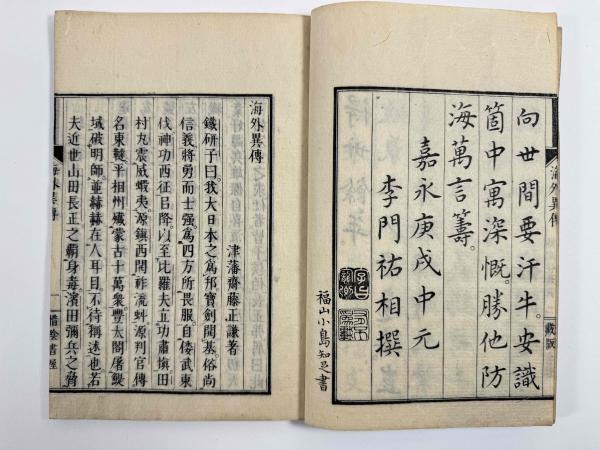 向世間要汗牛安識
箇中寓深慨勝他防
海萬言籌
嘉永庚戌中元
李門祐相撰
福山小島知足書
海外異傳
海外異傳
津藩齋藤正謙著
鐵研子曰我大日本之爲邦寶劍開基俗尚
信義將勇而士强爲四方所畏服自倭武東
伐神功西征已降以至比羅夫立功肅愼田
村丸震威蝦夷源鎭西開祚流虬源判官傳
名東韃平相州殲蒙古十萬衆豐太閤屠鯷
域破明師並赫赫在人耳目不待稱述也若
夫近世山田長正之覇身毒濱田彌兵之脅
海外異傳